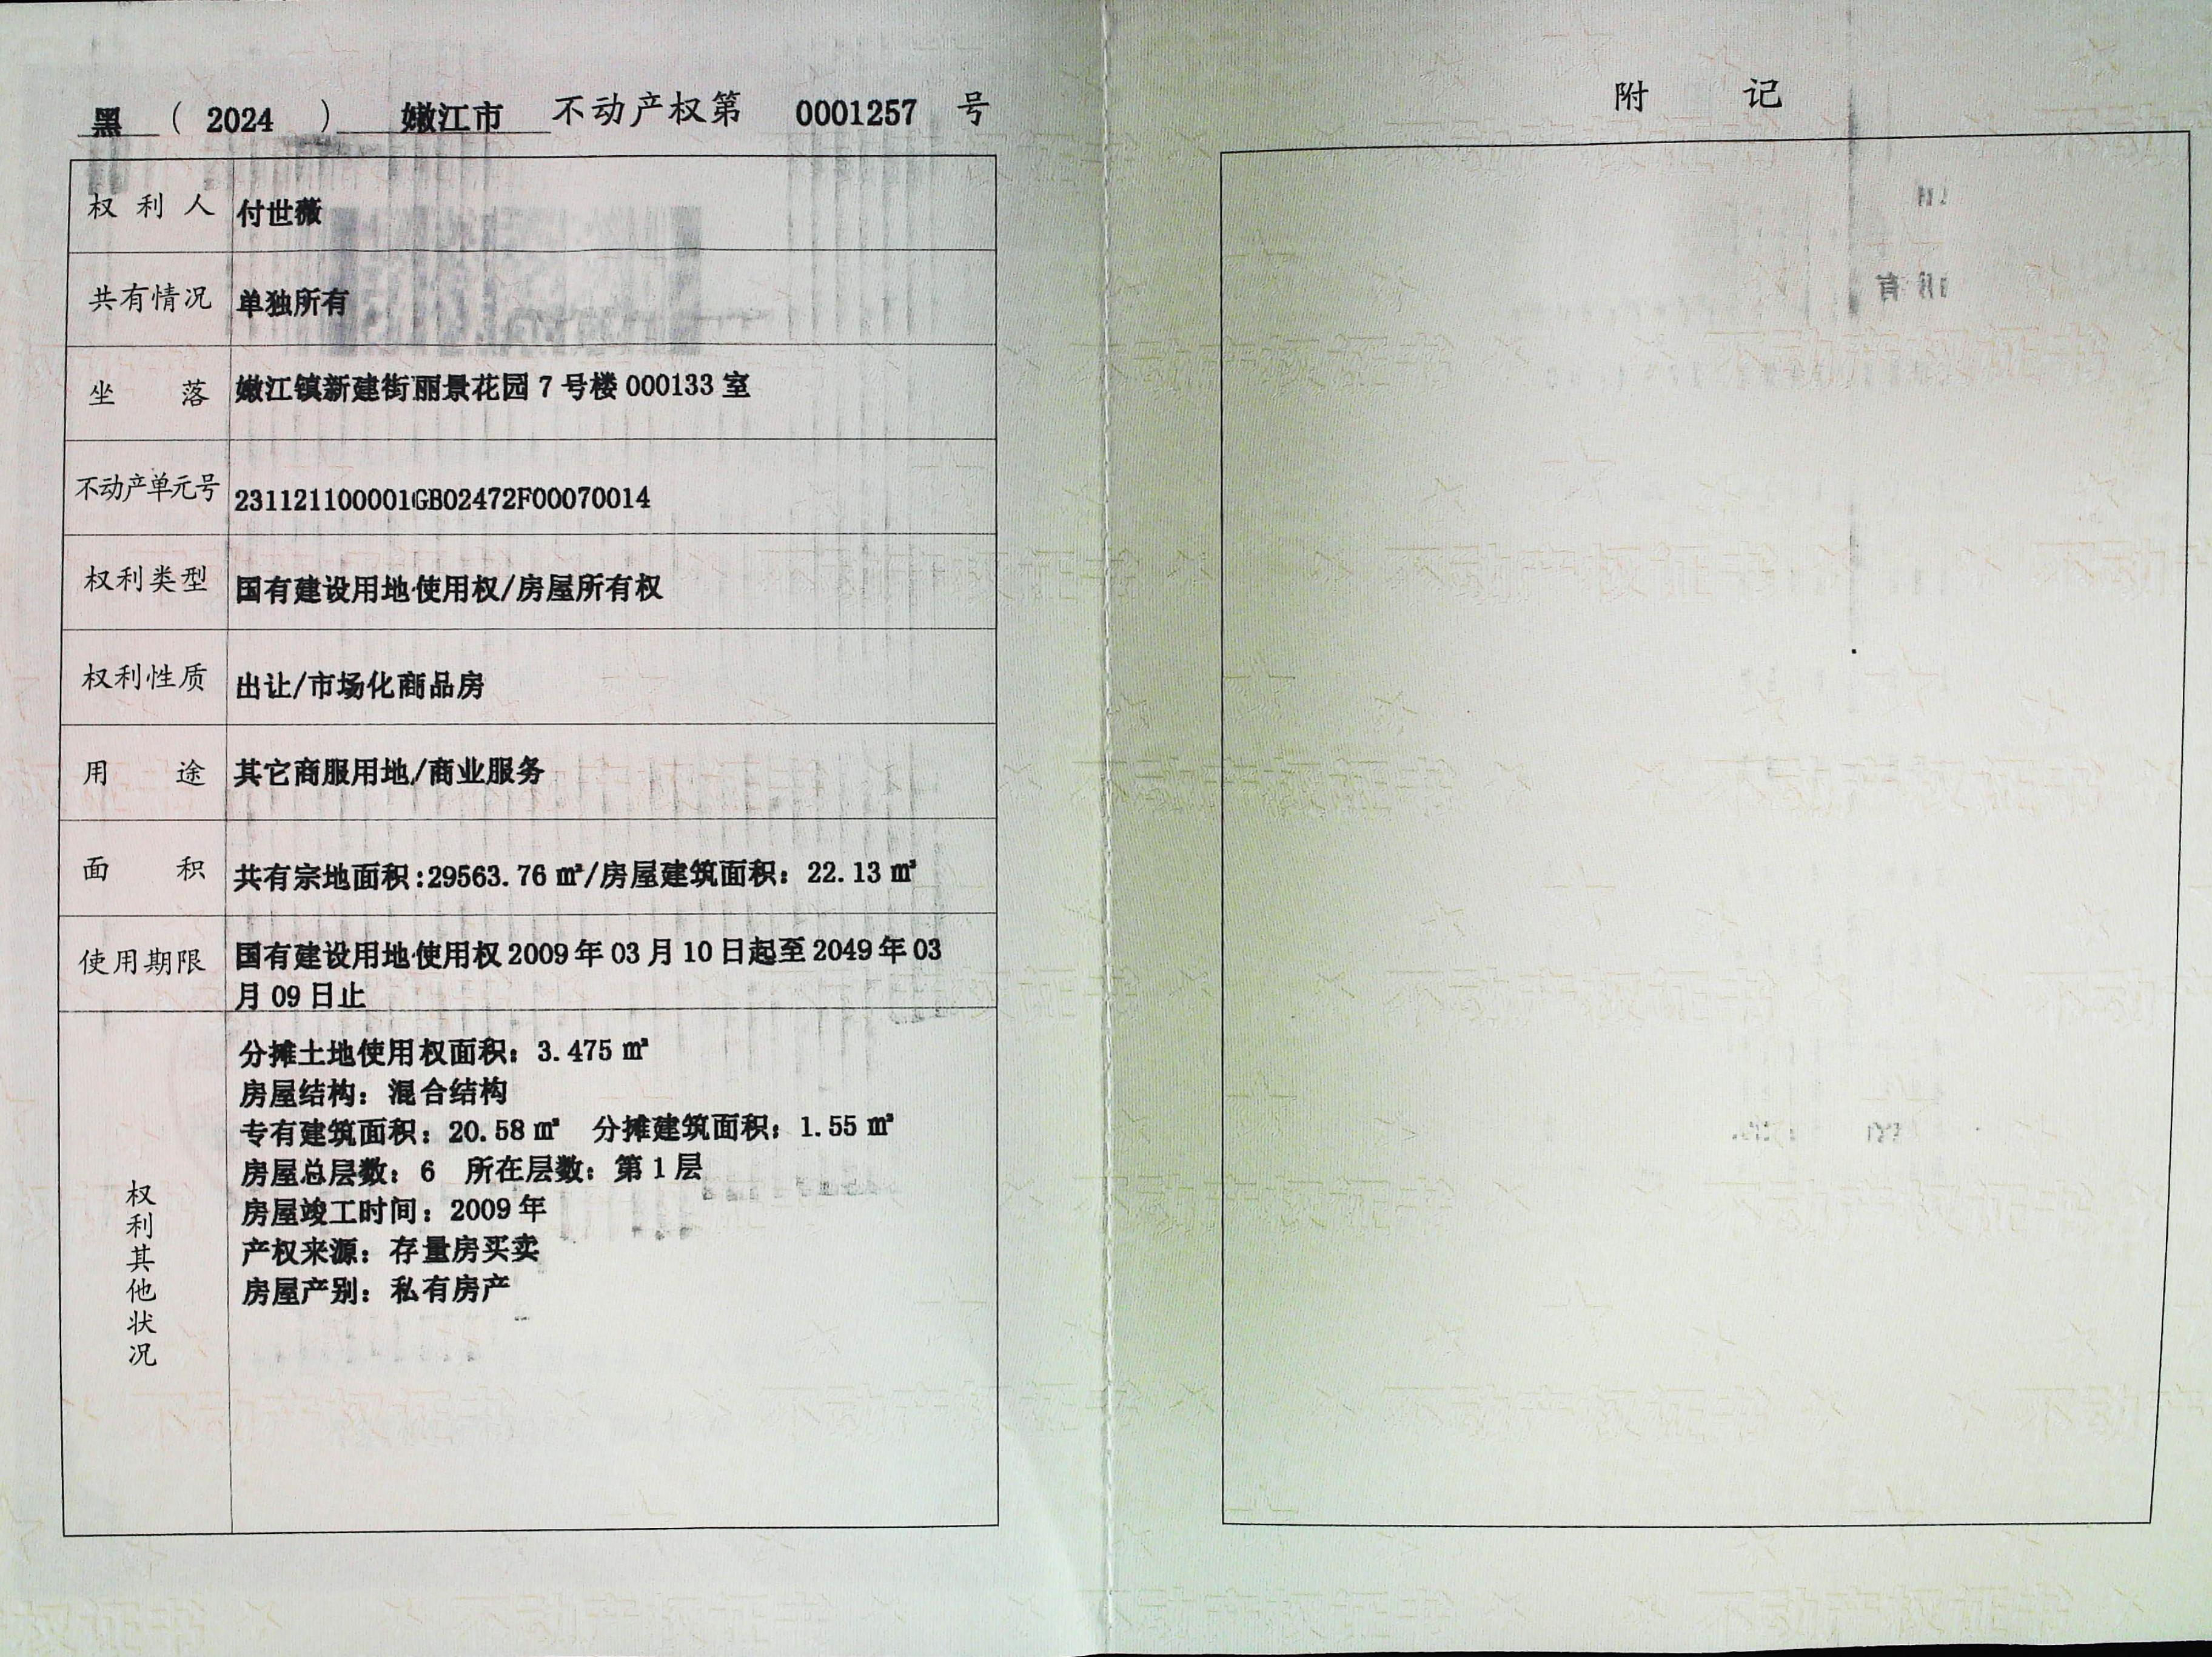 黑（2024）嫩江市不动产权第 0001257 号
权利人 付世薇
共有情况 单独所有
坐落 嫩江镇新建街丽景花园 7 号楼 000133 室
不动产单元号 231121100001GB02472F00070014
权利类型 国有建设用地使用权/房屋所有权
权利性质 出让/市场化商品房
用途 其它商服用地/商业服务
面积 共有宗地面积:29563.76 ㎡/房屋建筑面积：22.13 ㎡
使用期限 国有建设用地使用权 2009 年 03 月 10 日起至 2049 年 03
月 09 日止
权利其他状况
分摊土地使用权面积：3.475 ㎡
房屋结构：混合结构
专有建筑面积：20.58 ㎡ 分摊建筑面积：1.55 ㎡
房屋总层数：6 所在层数：第 1 层
房屋竣工时间：2009 年
产权来源：存量房买卖
房屋产别：私有房产
附记